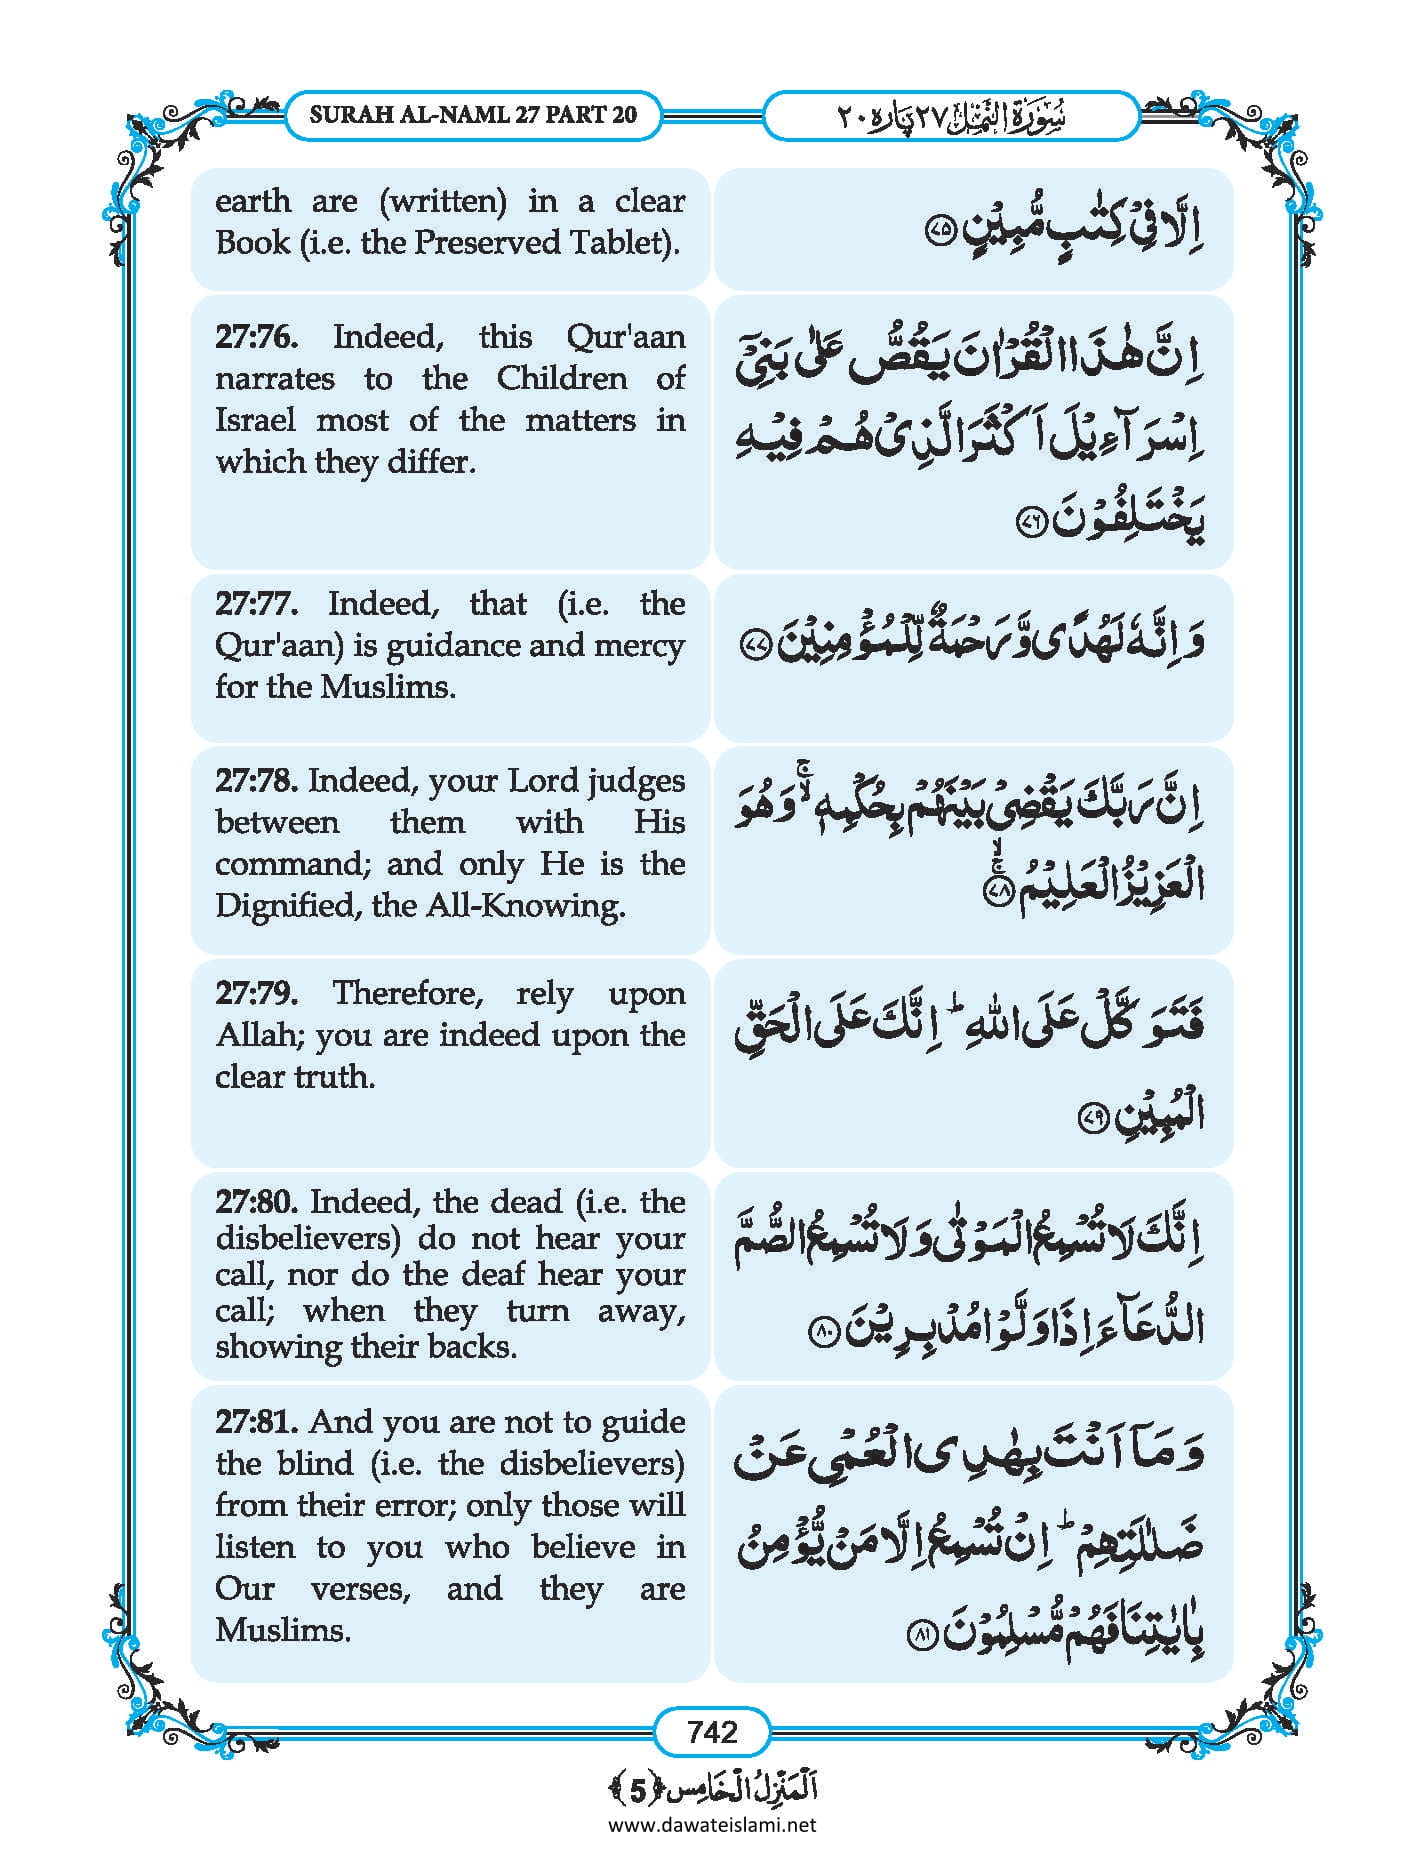 SURAH AL-NAML 27 PART 20
سُوۡرَةُ النَّمۡل ۲۷ پَارہ ۲۰
earth are (written) in a clear
Book (i.e. the Preserved Tablet).
اِلَّا فِیۡ کِتٰبٍ مُّبِیۡنٍ ﴿۷۵﴾
27:76. Indeed, this Qur'aan
narrates to the Children of
Israel most of the matters in
which they differ.
اِنَّ ہٰذَا الۡقُرۡاٰنَ یَقُصُّ عَلٰی بَنِیۡۤ
اِسۡرَآءِیۡلَ اَکۡثَرَ الَّذِیۡ ہُمۡ فِیۡہِ
یَخۡتَلِفُوۡنَ ﴿۷۶﴾
27:77. Indeed, that (i.e. the
Qur'aan) is guidance and mercy
for the Muslims.
وَ اِنَّہٗ لَہُدًی وَّ رَحۡمَۃٌ لِّلۡمُؤۡمِنِیۡنَ ﴿۷۷﴾
27:78. Indeed, your Lord judges
between them with His
command; and only He is the
Dignified, the All-Knowing.
اِنَّ رَبَّکَ یَقۡضِیۡ بَیۡنَہُمۡ بِحُکۡمِہٖ ۚ وَ ہُوَ
الۡعَزِیۡزُ الۡعَلِیۡمُ ﴿ۙۚ۷۸﴾
27:79. Therefore, rely upon
Allah; you are indeed upon the
clear truth.
فَتَوَکَّلۡ عَلَی اللہِ ؕ اِنَّکَ عَلَی الۡحَقِّ
الۡمُبِیۡنِ ﴿۷۹﴾
27:80. Indeed, the dead (i.e. the
disbelievers) do not hear your
call, nor do the deaf hear your
call; when they turn away,
showing their backs.
اِنَّکَ لَا تُسۡمِعُ الۡمَوۡتٰی وَ لَا تُسۡمِعُ الصُّمَّ
الدُّعَآءَ اِذَا وَلَّوۡا مُدۡبِرِیۡنَ ﴿۸۰﴾
27:81. And you are not to guide
the blind (i.e. the disbelievers)
from their error; only those will
listen to you who believe in
Our verses, and they are
Muslims.
وَ مَاۤ اَنۡتَ بِہٰدِی الۡعُمۡیِ عَنۡ
ضَلٰلَتِہِمۡ ؕ اِنۡ تُسۡمِعُ اِلَّا مَنۡ یُّؤۡمِنُ
بِاٰیٰتِنَا فَہُمۡ مُّسۡلِمُوۡنَ ﴿۸۱﴾
742
اَلۡمَنۡزِلُ الۡخَامِس ﴿5﴾
www.dawateislami.net